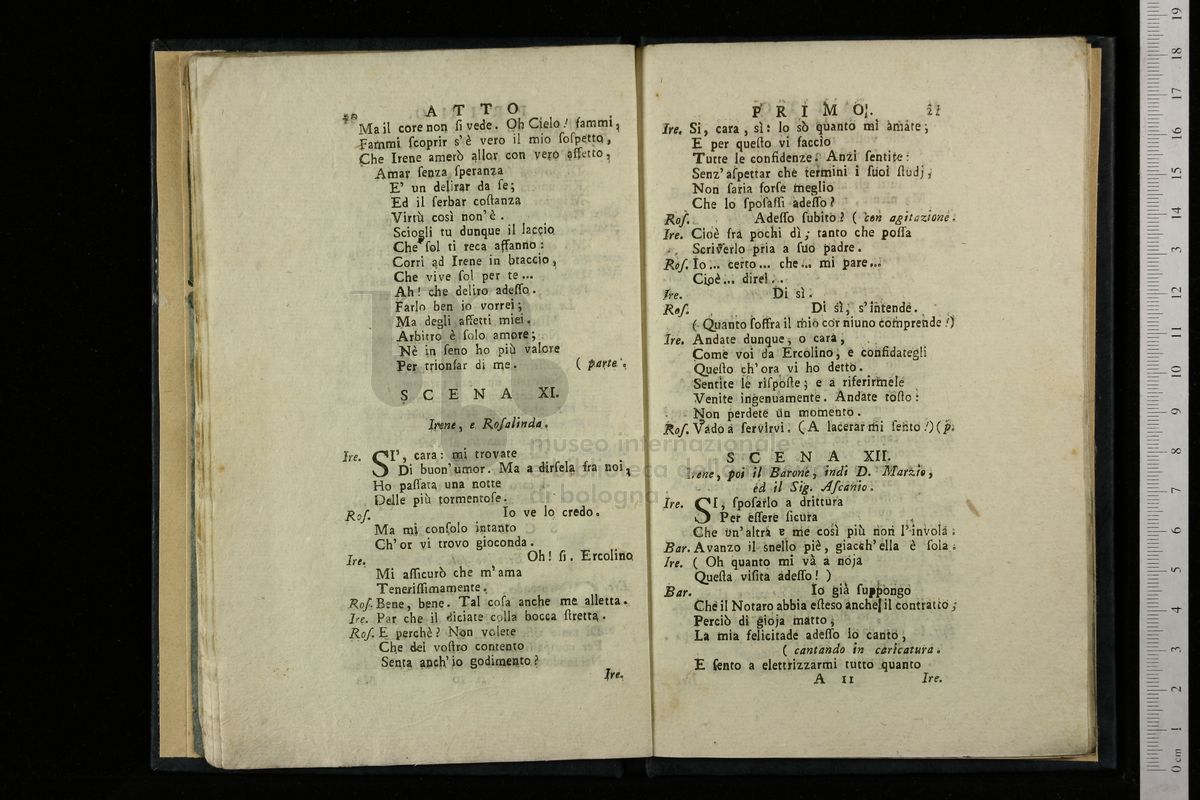 20 ATTO
Ma il core non ſi vede. Oh Cielo! fammi,
Fammi ſcoprir s'è vero il mio ſoſpetto,
Che Irene amerò allor con vero affetto,
Amar ſenza ſperanza
E' un delirar da ſe;
Ed il ſerbar coſtanza
Virtù così non'è.
Sciogli tu dunque il laccio
Che ſol ti reca affanno:
Corri ad Irene in btaccio,
Che vive ſol per te...
Ah! che deliro adeſſo.
Farlo ben io vorrei;
Ma degli affetti miei.
Arbitro è ſolo amore;
Nè in ſeno ho più valore
Per trionfar di me. ( parte.
SCENA XI.
Irene, e Roſalinda.
Ire. SI', cara: mi trovate
Di buon'umor. Ma a dirſela fra noi,
Ho paſſata una notte
Delle più tormentoſe.
Roſ. Io ve lo credo.
Ma mi conſolo intanto
Ch'or vi trovo gioconda.
Ire. Oh! ſi. Ercolino
Mi aſſicurò che m'ama
Teneriſſimamente.
Roſ. Bene, bene. Tal coſa anche me alletta.
Ire. Par che il diciate colla bocca ſtretta.
Roſ. E perchè? Non volete
Che del voſtro contento
Senta anch'io godimento?
Ire.
PRIMO. 21
Ire. Si, cara, sì: Io sò quanto mi amate;
E per queſto vi faccio
Tutte le confidenze. Anzi ſentite:
Senz'aſpettar che termini i ſuoi ſtudj,
Non ſaria forſe meglio
Che lo ſpoſaſſi adeſſo?
Roſ. Adeſſo ſubito? ( con agitazione.
Ire. Cioè fra pochi dì; tanto che poſſa
Scriverlo pria a ſuo padre.
Roſ. Io... certo... che... mi pare...
Cioè... direi...
Ire. Di sì.
Roſ. Di sì, s'intende.
( Quanto ſoffra il mio cor niuno comprende!)
Ire. Andate dunque, o cara,
Come voi da Ercolino, e confidategli
Queſto ch'ora vi ho detto.
Sentite le riſpoſte; e a riferirmele
Venite ingenuamente. Andate toſto:
Non perdete un momento.
Roſ. Vado a ſervirvi. (A lacerarmi ſento!)(p.
SCENA XII.
Irene, poi il Barone, indi D. Marzio,
ed il Sig. Aſcanio.
Ire. SI, ſpoſarlo a drittura
Per eſſere ſicura
Che un'altra a me così più non l'invola.
Bar. Avanzo il snello piè, giacch'ella è ſola.
Ire. ( Oh quanto mi và a noja
Queſta viſita adeſſo! )
Bar. Io già ſuppongo
Che il Notaro abbia eſteso anche il contratto;
Perciò di gioja matto,
La mia felicitade adeſſo io canto,
( cantando in caricatura.
E ſento a elettrizzarmi tutto quanto
A 11 Ire.
museo internazionale
e biblioteca della musica
di bologna
0 cm 1 2 3 4 5 6 7 8 9 10 11 12 13 14 15 16 17 18 19